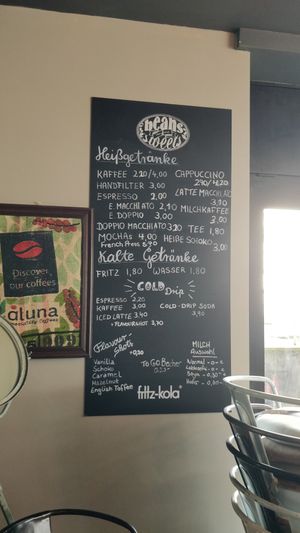 beans
sweets
Heißgetränke
KAFFEE 2,20/4,00 CAPPUCCINO
2,90/4,20
HANDFILTER 3,00 LATTE MACCHIATO
3,90
ESPRESSO 2,00
E MACCHIATO 2,10 MILCHKAFFEE
3,00
E DOPPIO 3,00
DOPPIO MACCHIATO 3,20 TEE 1,80
MOCHAS 4,00 HEIßE SCHOKO
3,00
French Press 5,90
Kalte Getränke
FRITZ 1,80 WASSER 1,80
COLD Drip
ESPRESSO 2,20
KAFFEE 3,00 COLD-DRIP SODA
3,40
ICED LATTE 3,40
+ FLAVOURSHOT 3,70
Flavour-
Shots
+0,30
Vanille
Schoko
Caramel
Hazelnut
English Toffee
To Go Becher
MILCH
Auswahl
Normal -0-€
Soja -0,30€
fritz-kola
Discover
our coffees
aluna